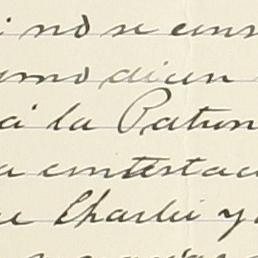 i no se cons
como dicen
á la Patron
a contestac
ue Charlie y